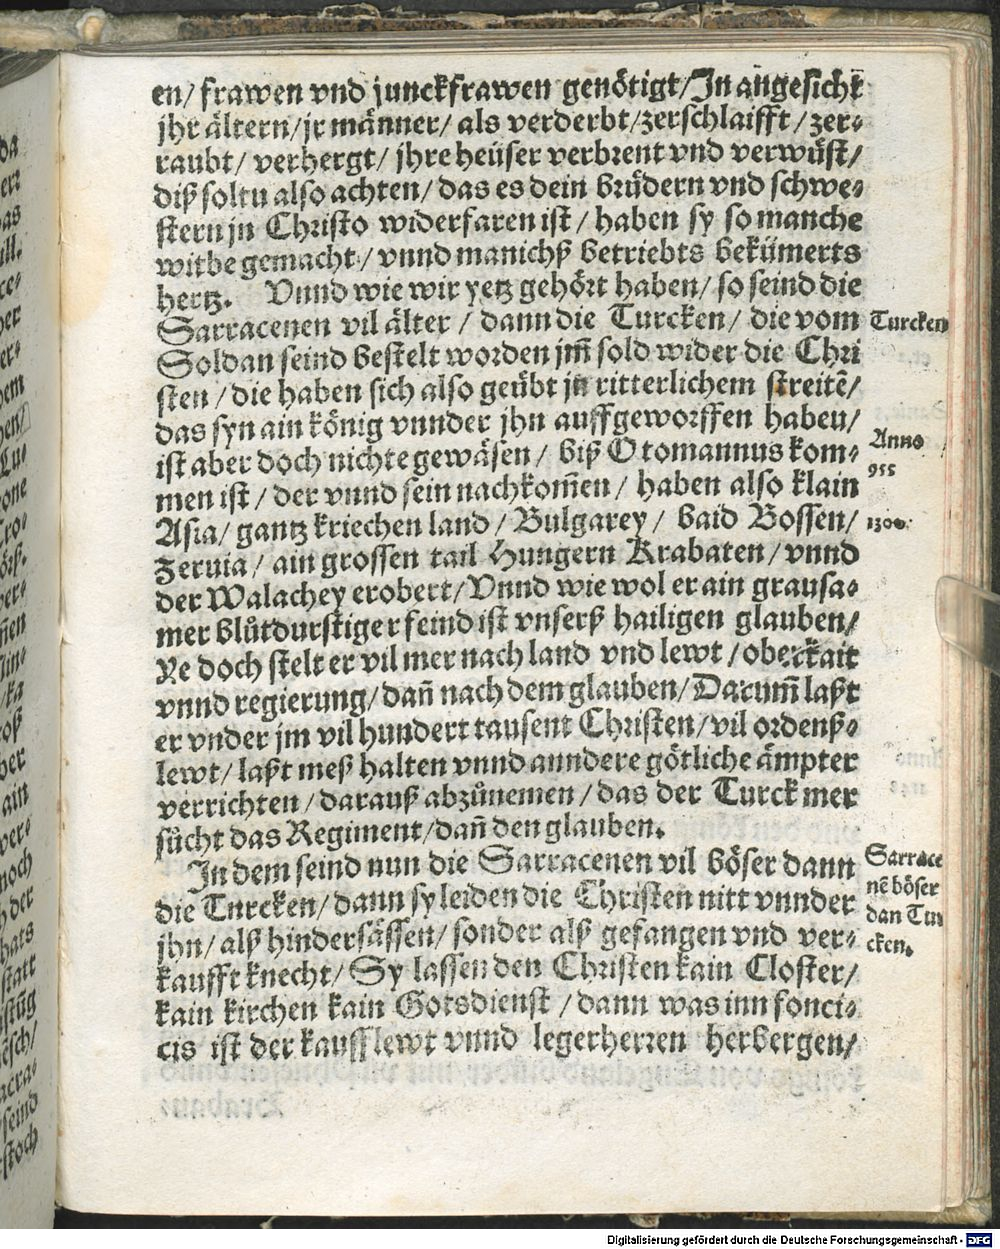 en/ frawen vnd junckfrawen genötigt/In angesicht
jhr ältern/jr männer/ als verderbt/zerschlaifft/ zer⸗
raubt/ verhergt/ jhre heüser verbrent vnd verwüst/
diß soltu also achten/ das es dein brüdern vnd schwe⸗
stern jn Christo widerfaren ist/ haben sy so manche
witbe gemacht/ vnnd manichß betriebts bekümerts
hertz. Vnnd wie wir yetz gehört haben/ so seind die
Sarracenen vil älter / dann die Turcken/ die vom
Turcken
Soldan seind bestelt worden jm̃ sold wider die Chri
sten / die haben sich also geübt jn ritterlichem streitẽ/
das syn ain könig vnnder jhn auffgeworffen haben/
Anno
ist aber doch nichte gewäsen/ biß Otomannus kom⸗
955
men ist / der vnnd sein nachkom̃en / haben also klain
Asia/ gantz kriechen land/ Bulgarey / baid Bossen/
1300.
Zeruia/ ain grossen tail Hungern Krabaten/ vnnd
der Walachey erobert/ Vnnd wie wol er ain grausa⸗
mer blůtdurstiger feind ist vnserß hailigen glauben/
Ye doch stelt er vil mer nach land vnd lewt / oberckait
vnnd regierung/ dañ nach dem glauben/ Darum̃ laßt
er vnder jm vil hundert tausent Christen/ vil ordenß⸗
lewt/ laßt meß halten vnnd anndere götliche ämpter
verrichten / darauß abzůnemen / das der Turck mer
sůcht das Regiment/dañ den glauben.
In dem seind nun die Sarracenen vil böser dann
Sarrace
nẽ böser
dan Tur
cken.
die Tnrcken/ dann sy leiden die Christen nitt vnnder
jhn/ alß hindersässen/ sonder alß gefangen vnd ver⸗
kaufft knecht/ Sy lassen den Christen kain Closter/
kain kirchen kain Gotsdienst / dann was inn fonci⸗
cis ist der kaufflewt vnnd legerherren herbergen/
Digitalisierung gefördert durch die Deutsche Forschungsgemeinschaft - DFG